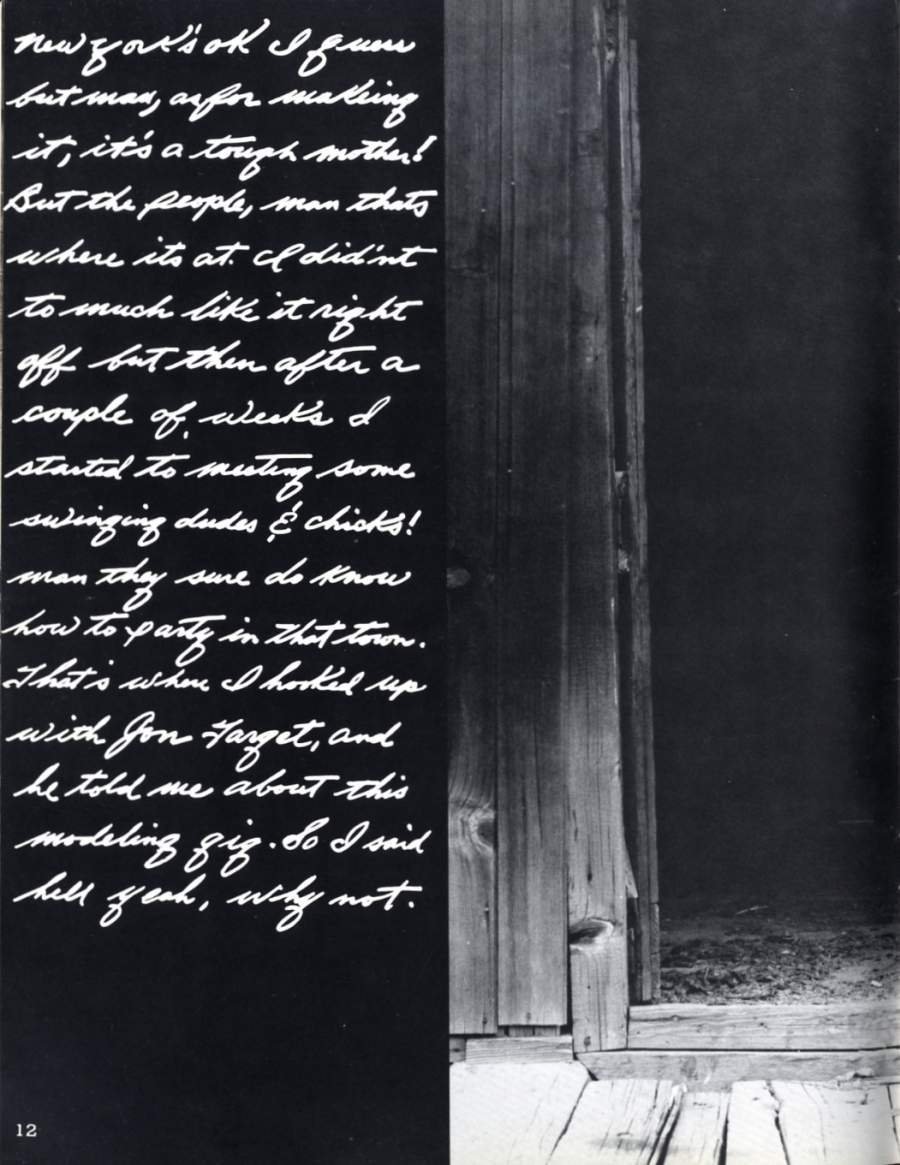 New york's ok I guess
but man, as for making
it, it's a tough mother!
But the people, man thats
where its at. I did'nt
to much like it right
off but then after a
couple of weeks I
started to meeting some
swinging dudes & chicks!
man they sure do know
how to party in that town.
That's when I hooked up
with Jon Target, and
he told me about this
modeling gig. So I said
hell yeah, why not.
12